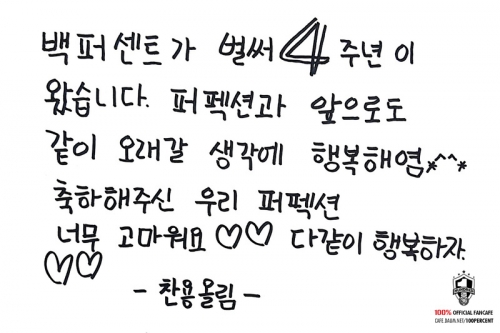 백퍼센트가 벌써 4주년이
왔습니다. 퍼펙션과 앞으로도
같이 오래갈 생각에 행복해염*^^*
축하해주신 우리 퍼펙션
너무 고마워요♡♡ 다같이 행복하자.
♡♡
- 찬용올림 -
100% OFFICIAL FANCAFE
CAFE.DAUM.NET/100PERCENT